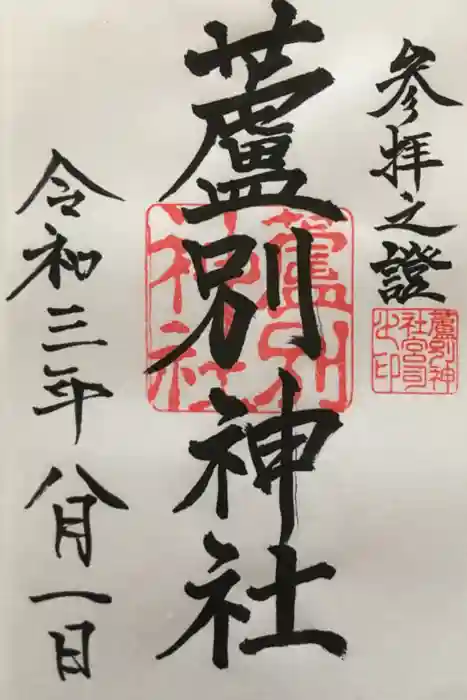 参拝之證
蘆別神社宮司之印
蘆別神社
蘆別神社
令和三年八月一日